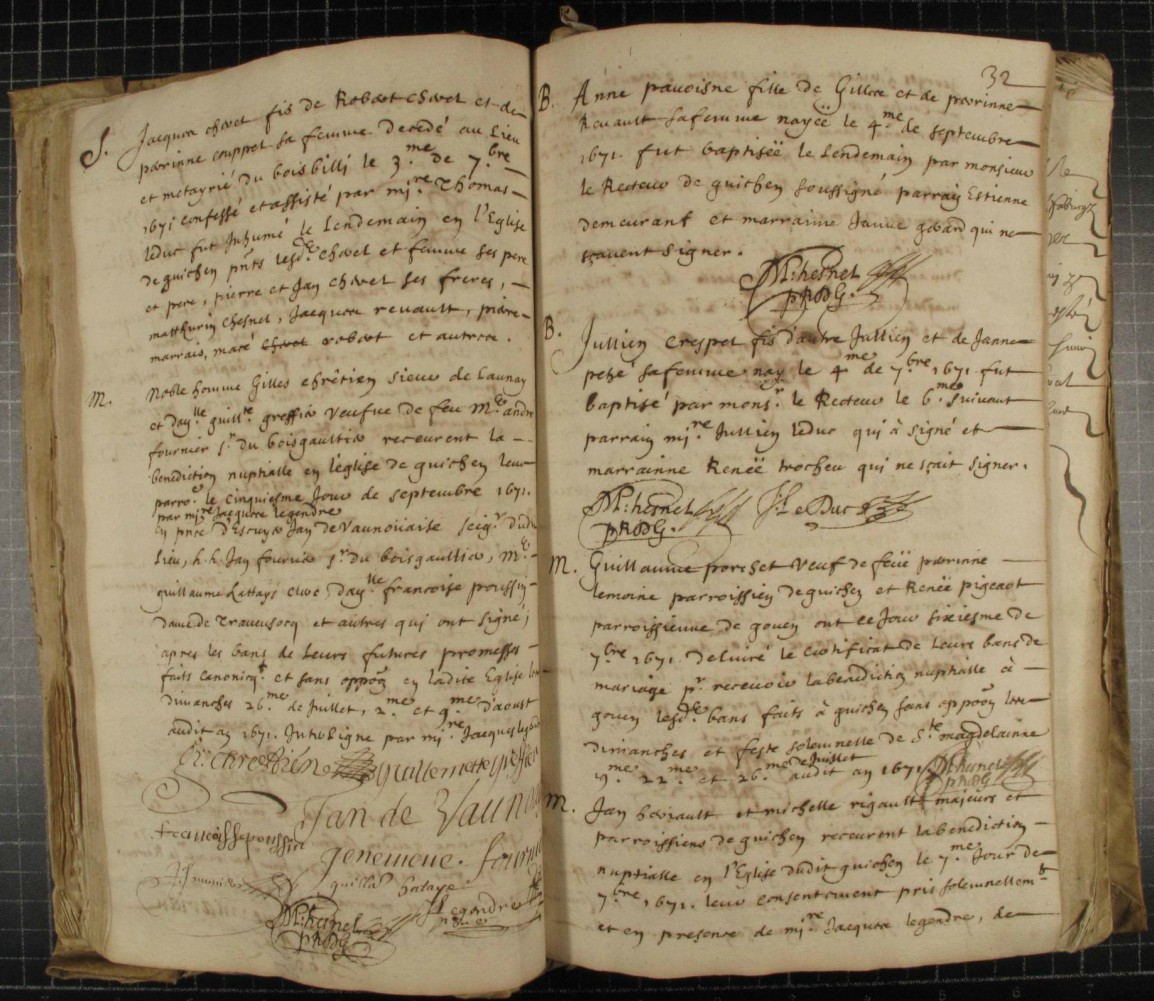 S. Jacques chevet fis de Robert chevet et de
perrinne couppel sa femme decedé au Lieu
et metayrié du boisbilli le 3.me de 7.bre
1671 confessé et assisté par mi.re Thomas
leduc fut Inhumé le Lendemain en l'Eglise
de guichen pnts lesd. chevet et femme ses pere
et pere, pierre et Jan chevet ses freres,
matthurin chesnel, Jacques revault, pierre
marrais, macé robert et autres.
M. Noble homme Gilles chrêtien sieur de Launay
et Day.lle guill.te greffier veufve de feu M. andré
fournier s.r du boisgaultier receurent la
benediction nuptialle en l'églize de guichen leur
parro. le cinquiesme Jour de septembre 1671.
par mi.re Jacques legendre
en pnce d'Escuyer Jan de Vaunoüaise seig.r dud.
Lieu, h.h. Jan fournier s.r du boisgaultier, M.
guillaume Lattays Day.lle francoise poussin
dame de et autres qui ont signé;
apres les bans de Leurs futures promesses
faits canoniq.t et sans oppôon en ladite Eglise les
dimanches 26.me de Juillet, 2.me et 9.me d'aoust
audit an 1671. Interligne par mi.re Jacques legendre
G. chrestien Guillemette greffier
Jan de Vauno
francoisse poussin
genevieve. fournier
J. fournier
guilla
M. chesnel J. Legendre
pRDG
32
B. Anne pavoisne fille de Gilles et de perrinne
Revault sa femme nayëe le 4.me de septembre
1671. fut baptisëe le Lendemain par monsieur
le Recteur de guichen soussigné parrain Estienne
demeurant et marraine Janne gerard qui ne
sçavent signer.
M. chesnel
pRDG.
B. Jullien crespel fis d'autre Jullien et de Janne
pehé sa femme nay le 4.me de 7.bre 1671. fut
baptisé par mons.r le Recteur le 6.me suivant
parrain mi.re Jullien leduc qui à signé et
marrainne Renëe trocheu qui ne sçait signer.
M. chesnel J. Le Duc
pRDG.
M. Guillaume porchet veuf de feüe perrinne
lemoine parroissien de guichen et Renée pigeaot
parroissienne de goven ont ce Jour sixiesme de
7.bre 1671. delivré le certificat de Leurs bans de
mariage p.r recevoir la benediction nuptialle à
goven lesd. bans faits à guichen sans oppôon les
dimanches et feste solemnelle de S.te magdelainne
19.me 22.me et 26.me de Juillet audit an 1671. M. chesnel
pRDG
M. Jan et michelle rigault majeurs et
parroissiens de guichen receurent la benediction
nuptialle en l'Eglise dudit guichen le 7.me Jour de
7.bre 1671. leur consentement pris solemnellem.t
et en presence de mi.re Jacques legendre, de